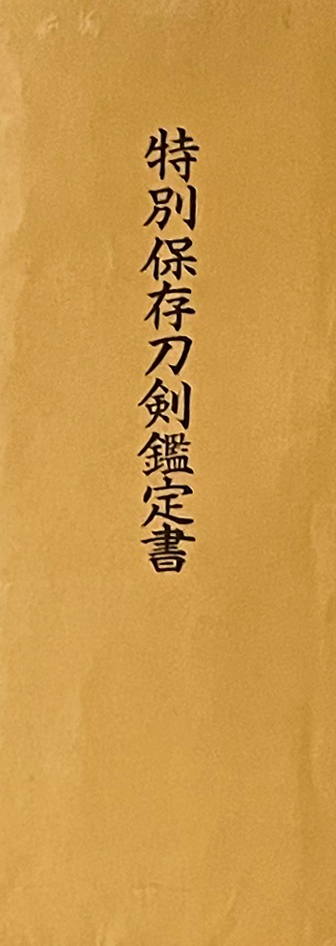 特別保存刀剣鑑定書